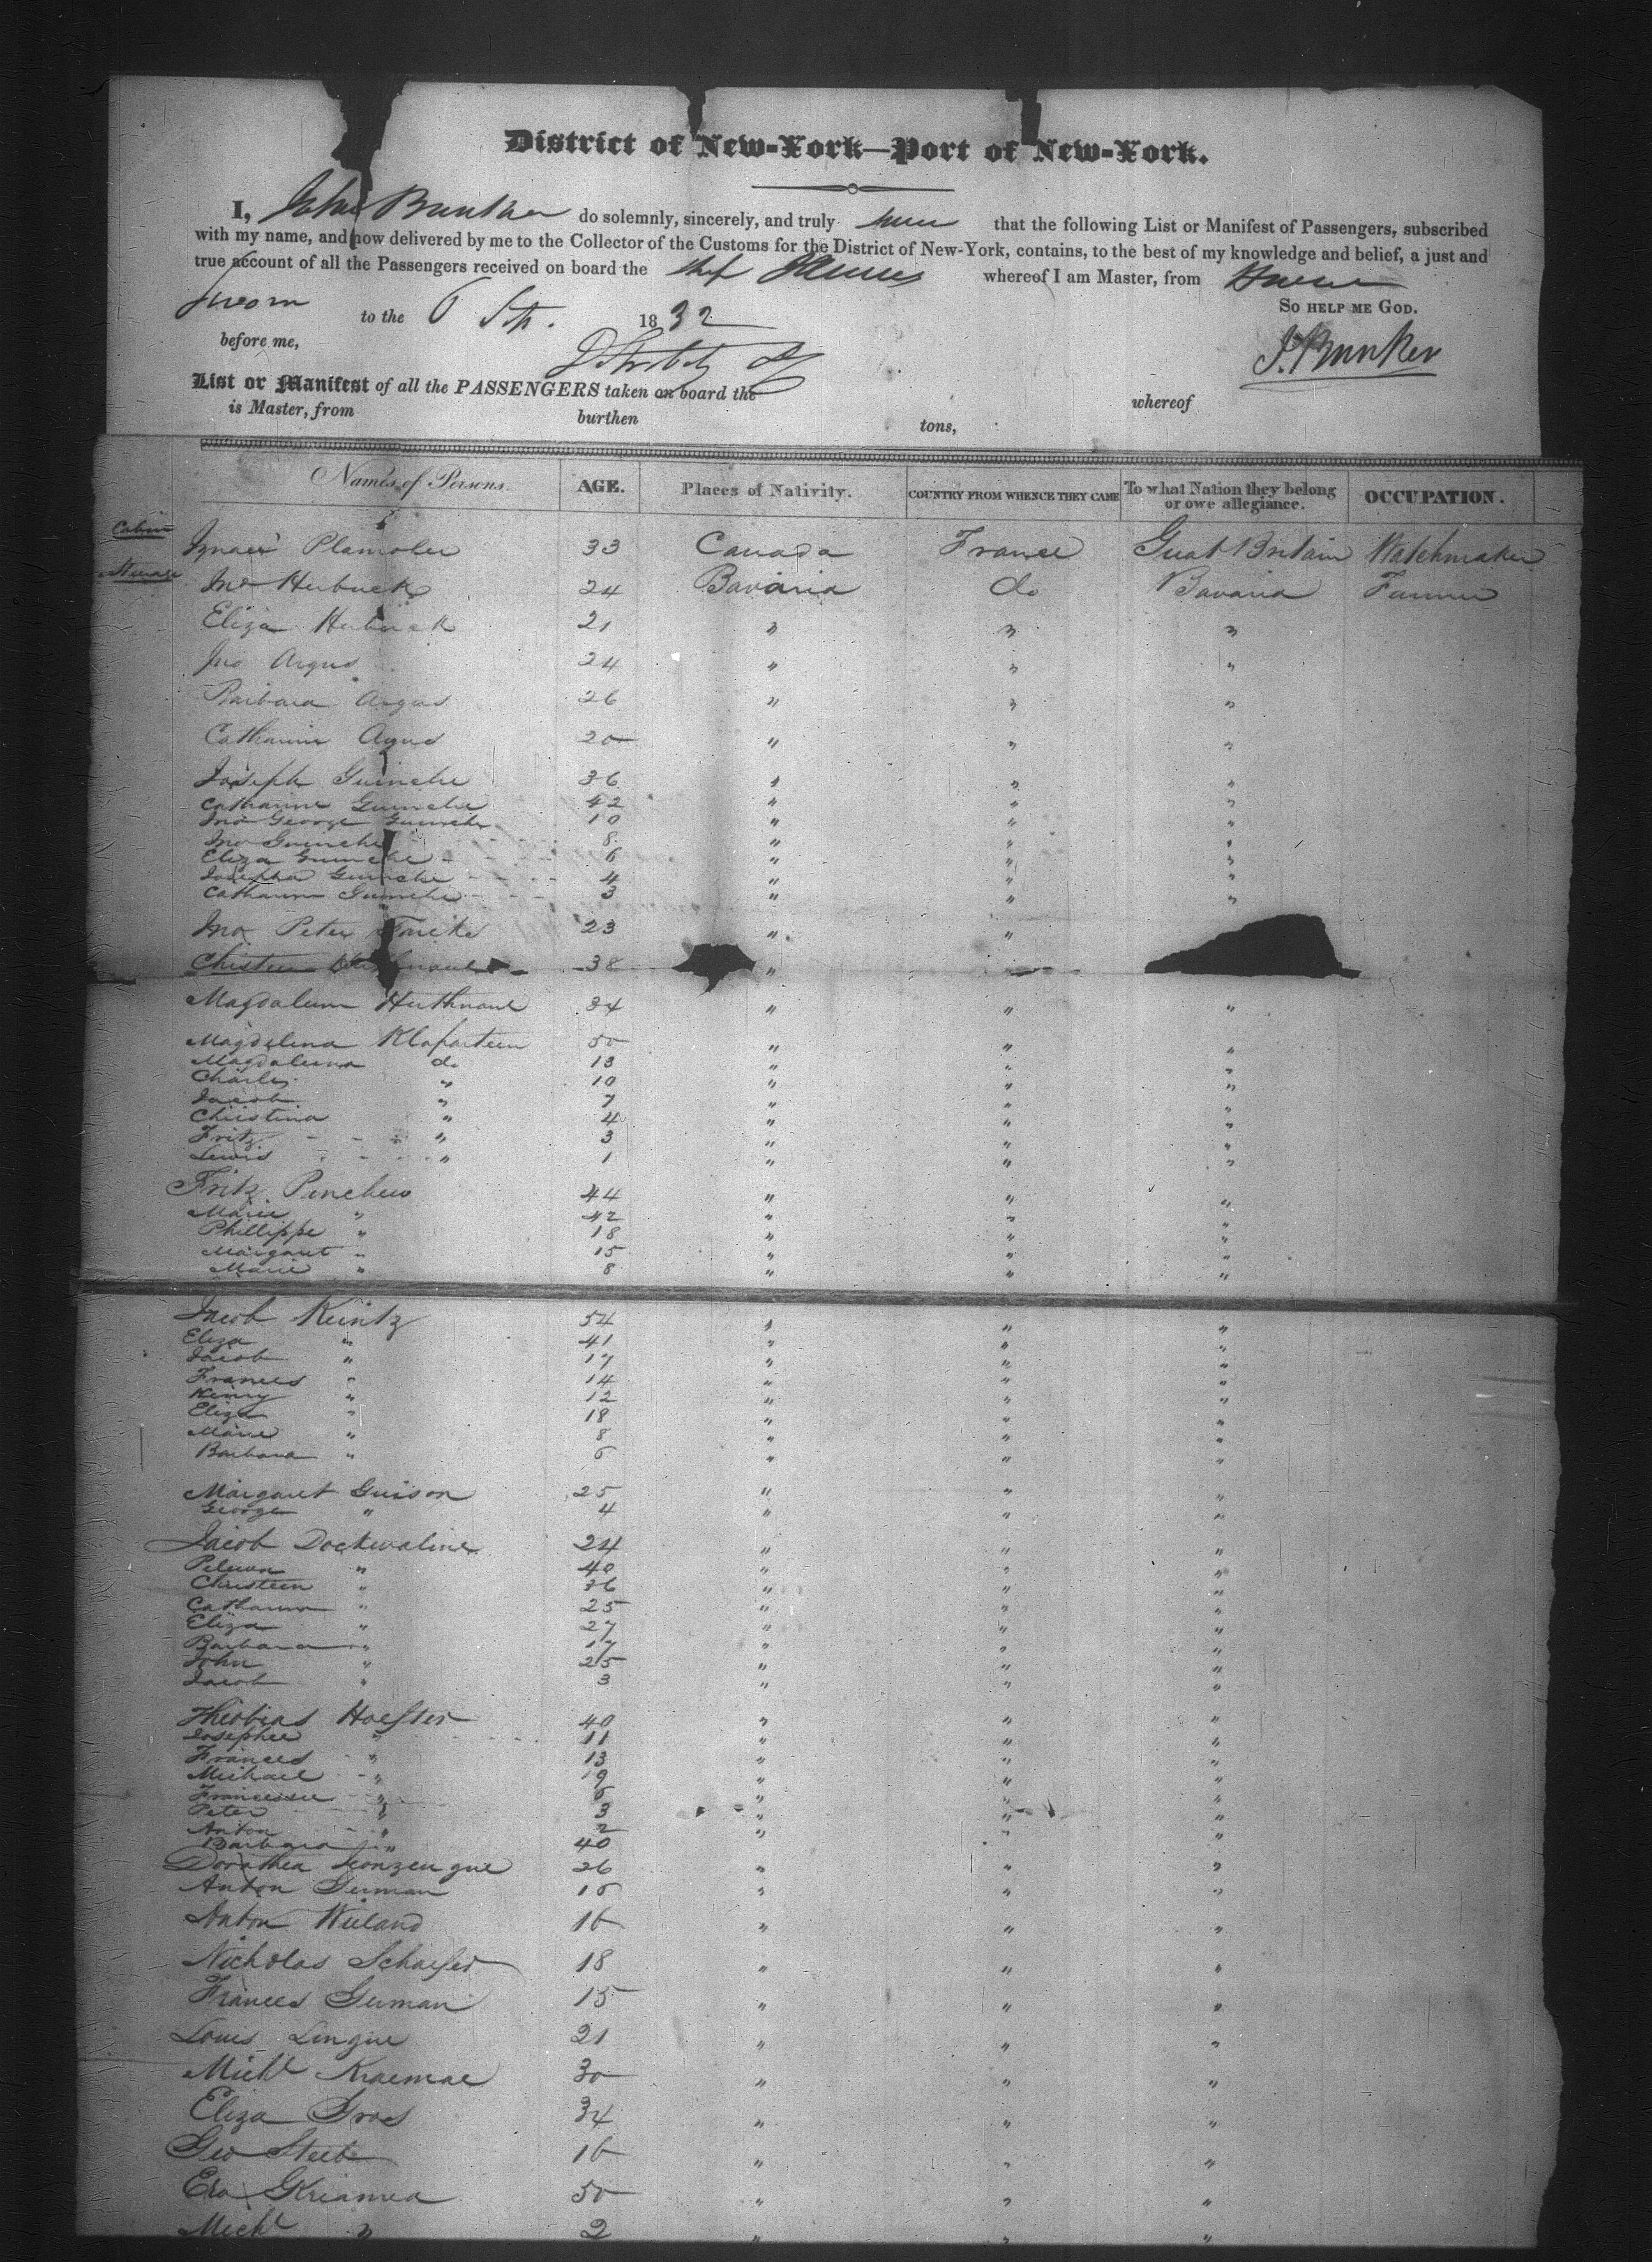 District of New-York—Port of New-York.
I, John Bunker do solemnly, sincerely, and truly that the following List or Manifest of Passengers, subscribed
with my name, and now delivered by me to the Collector of the Customs for the District of New-York, contains, to the best of my knowledge and belief, a just and
true account of all the Passengers received on board the Ship whereof I am Master, from Havre
Sworn to the 6 Sep. 1832 So help me God.
before me, J. Bunker
List or Manifest of all the PASSENGERS taken on board the whereof
is Master, from burthen tons,
Names of Persons. AGE. Places of Nativity. COUNTRY FROM WHENCE THEY CAME To what Nation they belong or owe allegiance. OCCUPATION.
Cabin 33 Canada France Great Britain Watchmaker
Steerage Jno Hubuck 24 Bavaria do Bavaria Farmer
Eliza Hubuck 21 " " "
Jno Argus 24 " " "
Barbara Argus 26 " " "
Catharine Agus 20 " " "
Joseph Guinche 36 " " "
Catharine Guinche 42 " " "
Jno George Guinche 10 " " "
Jno Guinche 8 " " "
Eliza Guinche 6 " " "
Josepha Guinche 4 " " "
Catharine Guinche 3 " " "
Jno Peter 23 " "
Christeen 38 "
Magdalena Huthmane 34 " " "
Magdelena Klofasteen 50 " " "
Magdaleena do 13 " " "
Charles " 10 " " "
Jacob " 7 " " "
Christina " 4 " " "
Fritz " 3 " " "
Lewis " 1 " " "
Fritz Pincheus 44 " " "
Marie " 42 " " "
Phillippe " 18 " " "
Margaret " 15 " " "
Marie " 8 " " "
Jacob Kuntz 54 " " "
Eliza " 41 " " "
Jacob " 17 " " "
Frances " 14 " " "
Henry " 12 " " "
Eliza " 18 " " "
Marie " 8 " " "
Barbara " 6 " " "
Margaret Guison 25 " " "
George " 4 " " "
Jacob Dockwaline 24 " " "
" 40 " " "
Christeen " 36 " " "
Catharine " 25 " " "
Eliza " 27 " " "
Barbara " 17 " " "
John " 25 " " "
Jacob " 3 " " "
Theobias Hoefter 40 " " "
Josephee " 11 " " "
Frances " 13 " " "
Michael " 19 " " "
" 6 " " "
Peter " 3 " " "
Anton " 2 " " "
Barbara " 40 "
Dorathea 26 " " "
Anton German 16 " " "
Anton Wieland 16 " " "
Nicholas Schaefer 18 " " "
Frances German 15 " " "
Louis Lingue 21 " " "
Michl Kraemae 30 " " "
Eliza Gros 34 " " "
Geo Steeb 16 " " "
Eva Kriamea 50 " " "
Michl " 2 " " "